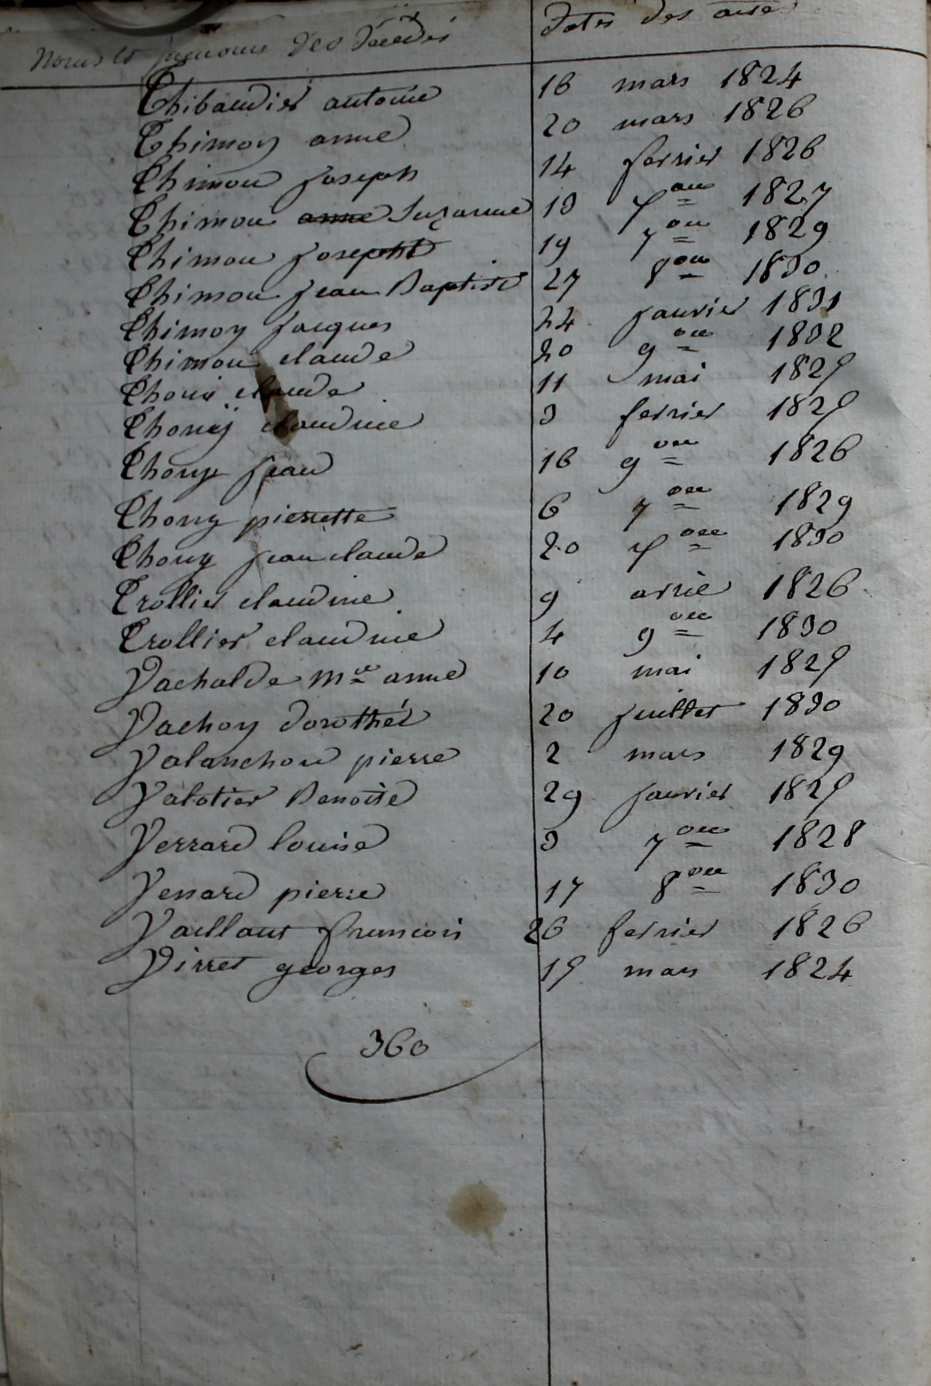 Noms et prénoms des Décédés Dates des actes
Thibaudier antoine 16 mars 1824
Thimoy anne 20 mars 1826
Thimou joseph 14 fevrier 1826
Thimou anne Suzanne 18 7bre 1827
Thimou joseph 19 7bre 1829
Thimou jean Baptiste 27 8bre 1830
Thimoy jacques 24 janvier 1831
Thimou claude 20 9bre 1832
Thoui claude 11 mai 1825
Thouÿ claudine 3 fevrier 1825
Thouy jean 16 9bre 1826
Thouy pierrette 6 7bre 1829
Thouy jean claude 20 7bre 1830
Trollier claudine 9 avril 1826
Trollier claudine 4 9bre 1830
Vachalde Mie anne 10 mai 1825
Vachoy dorothée 20 juillet 1830
Valanchou pierre 2 mars 1829
Valotier Benoite 29 janvier 1825
Verrard louise 3 7bre 1828
Venard pierre 17 8bre 1830
Vaillant francois 26 fevrier 1826
Virret georges 15 mars 1824
360